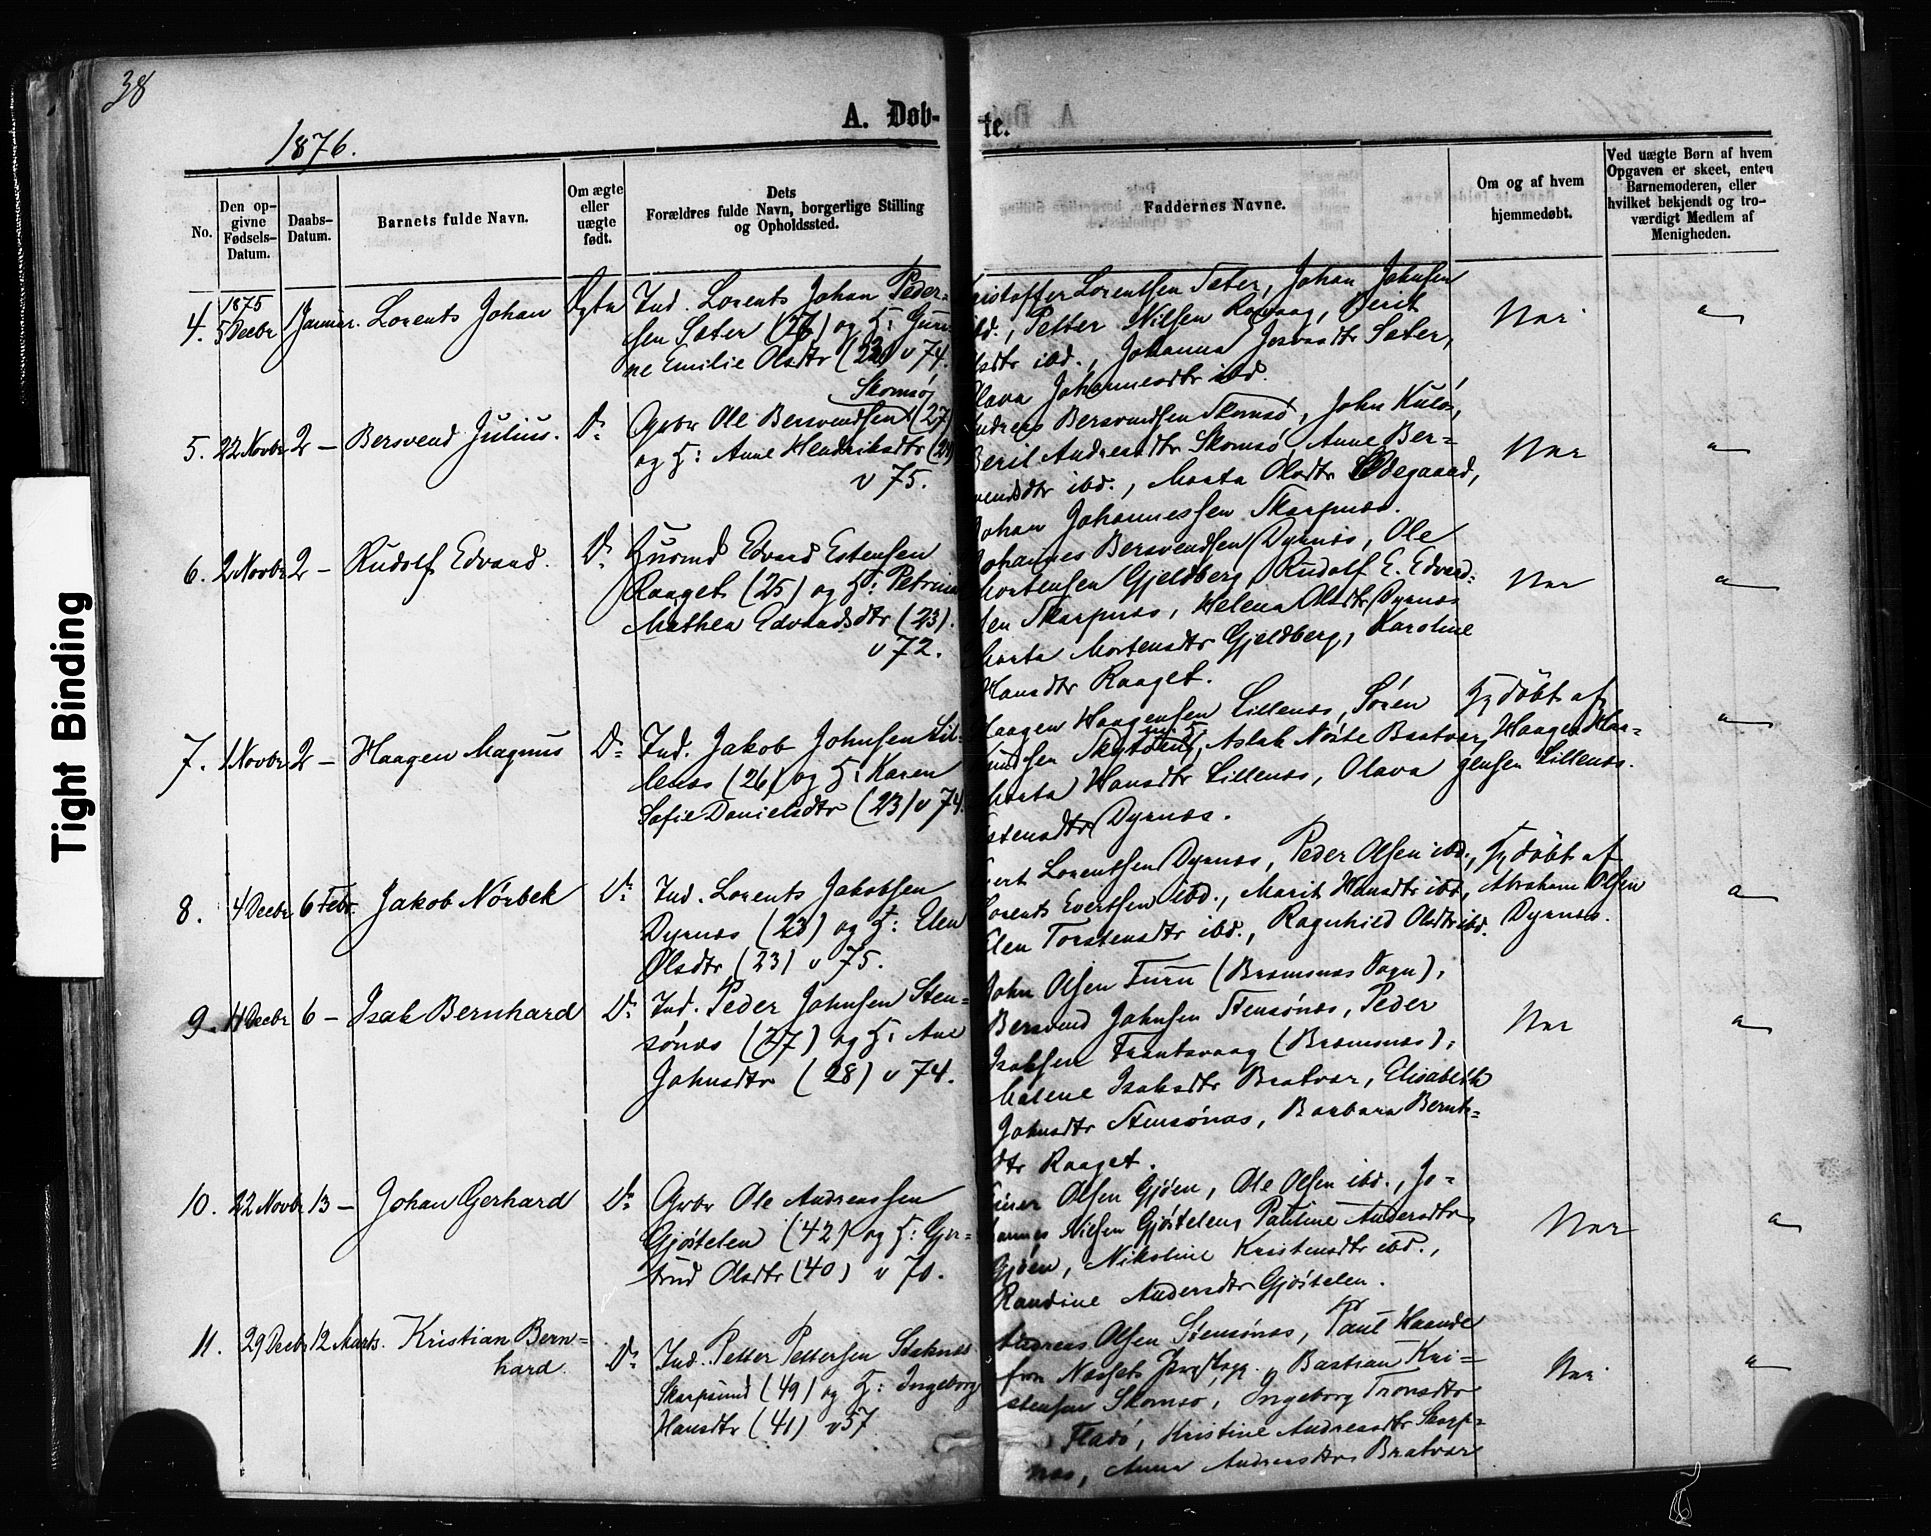 38
A. Døb-
te.
1876.
No.
Den op-
givne
Fødsels-
Datum.
Daabs-
Datum.
Barnets fulde Navn.
Om ægte
eller
uægte
født.
Dets
Forældres fulde Navn, borgerlige Stilling
og Opholdssted.
Faddernes Navne.
Om og af hvem
hjemmedøbt.
Ved uægte Børn af hvem
Opgaven er skeet, enten
Barnemoderen, eller
hvilket bekjendt og tro-
værdigt Medlem af
Menigheden.
4.
1875
5 Decbr
1 Januar.
Lorents Johan
Ægte
Ind. Lorents Johan Peder-
sen Sæter (26) og H: Guru-
ne Emilie Olsdtr (22) v 74.
ristoffer Lorentsen Sæter, Johan Johnsen
ibd., Petter Nilsen Rosvaag, Berit
lsdtr ibd., Johanna Sæter,
lava Johannesdtr ibd.
Nei
5.
22 Novbr
2 —
Bersvend Julius.
Do
Skomsø
Grbr Ole Bersvendsen (27)
og H: Anne Hendriksdtr (24)
v 75.
ndreas Bersvendsen Skomsø, John Kulø,
Berit Andreasdtr Skomsø, Anne Ber-
vendsdtr ibd., Marta Olsdtr Ødegaard,
Johan Johannessen Skarpnæs.
Nei
6.
2 Novbr
2 —
Rudolf Edvard.
Do
Husmd Edvard Estensen
Raaget (25) og H: Petrine
Mathea Edvardsdtr (23).
v 72.
Johannes Bersvendsen Dyrnæs, Ole
Mortensen Gjeldberg, Rudolf E. Edvard-
sen Skarpnæs, Helena Olsdtr Dyrnæs
Marta Mortensdtr Gjeldberg, Karoline
Hansdtr Raaget.
Nei
7.
1 Novbr
2 —
Haagen Magnus
Do
Ind. Jakob Johnsen Lil-
lenæs (26) og H: Karen
Sofie Danielsdtr (23) v 74.
Haagen Haagensen Lillenæs, Søren
undsen Aslak Nøste Bratvær,
Marta Hansdtr Lillenæs, Olava
stensdtr Dyrnæs.
Hj døbt af
Haagen Haa-
gensen Lillenæs.
8.
4 Decbr
6 Febr.
Jakob Nørbek
Do
Ind. Lorents Jakobsen
Dyrnæs (23) og H: Elen
Olsdtr (23) v 75.
vert Lorentsen Dyrnæs, Peder Olsen ibd.,
Lorents Evertsen ibd., Marit Hansdtr ibd,
Elen Torstensdtr ibd., Ragnhild Olsdtr ibd.
Hj døbt af
Abraham Olsen
Dyrnæs.
9.
11 Decbr
6 —
Isak Bernhard
Do
Ind. Peder Johnsen Sten-
sønæs (27) og H: Ane
Johnsdtr (28) v 74.
John Olsen Furu (Bremsnæs Sogn),
Bersvend Johnsen Stensønæs, Peder
Isaksen Frantsvaag (Bremsnæs),
Malene Isaksdtr Bratvær, Elisabeth
Johnsdtr Stensønæs, Barbara Bernts-
dtr Raaget.
Nei
10.
22 Novbr
13 —
Johan Gerhard
Do
Grbr Ole Andreassen
Gjøstelen (42) og H: Gjer-
trud Olsdtr (40) v 70.
Einer Olsen Gjøen, Ole Olsen ibd., Jo-
hannes Nilsen Gjøstelen, Pauline Andersdtr
Gjøen, Nikoline Kristensdtr ibd.,
Randine Andersdtr Gjøstelen.
Nei
11.
29 Decbr
12 Marts.
Kristian Bern-
hard.
Do
Ind. Petter Pettersen Staknæs
Skarpsund (49) og H: Ingeborg
Hansdtr (41) v 57.
Andreas Olsen Stensønæs, Paul Haande
fra Næssets Bastian Kri-
stensen Skomsø, Ingeborg Tronsdtr
Fladø, Kristine Andreasdtr Skarp-
næs, Anna Andreasdtr Bratvær
Nei
Tight Binding